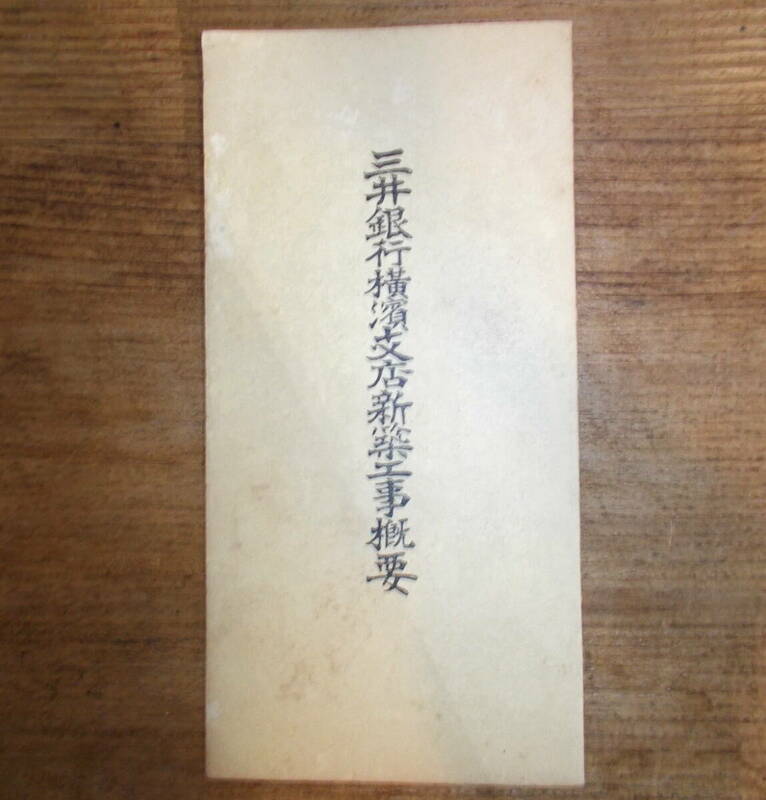 三井銀行横濱支店新築工事概要